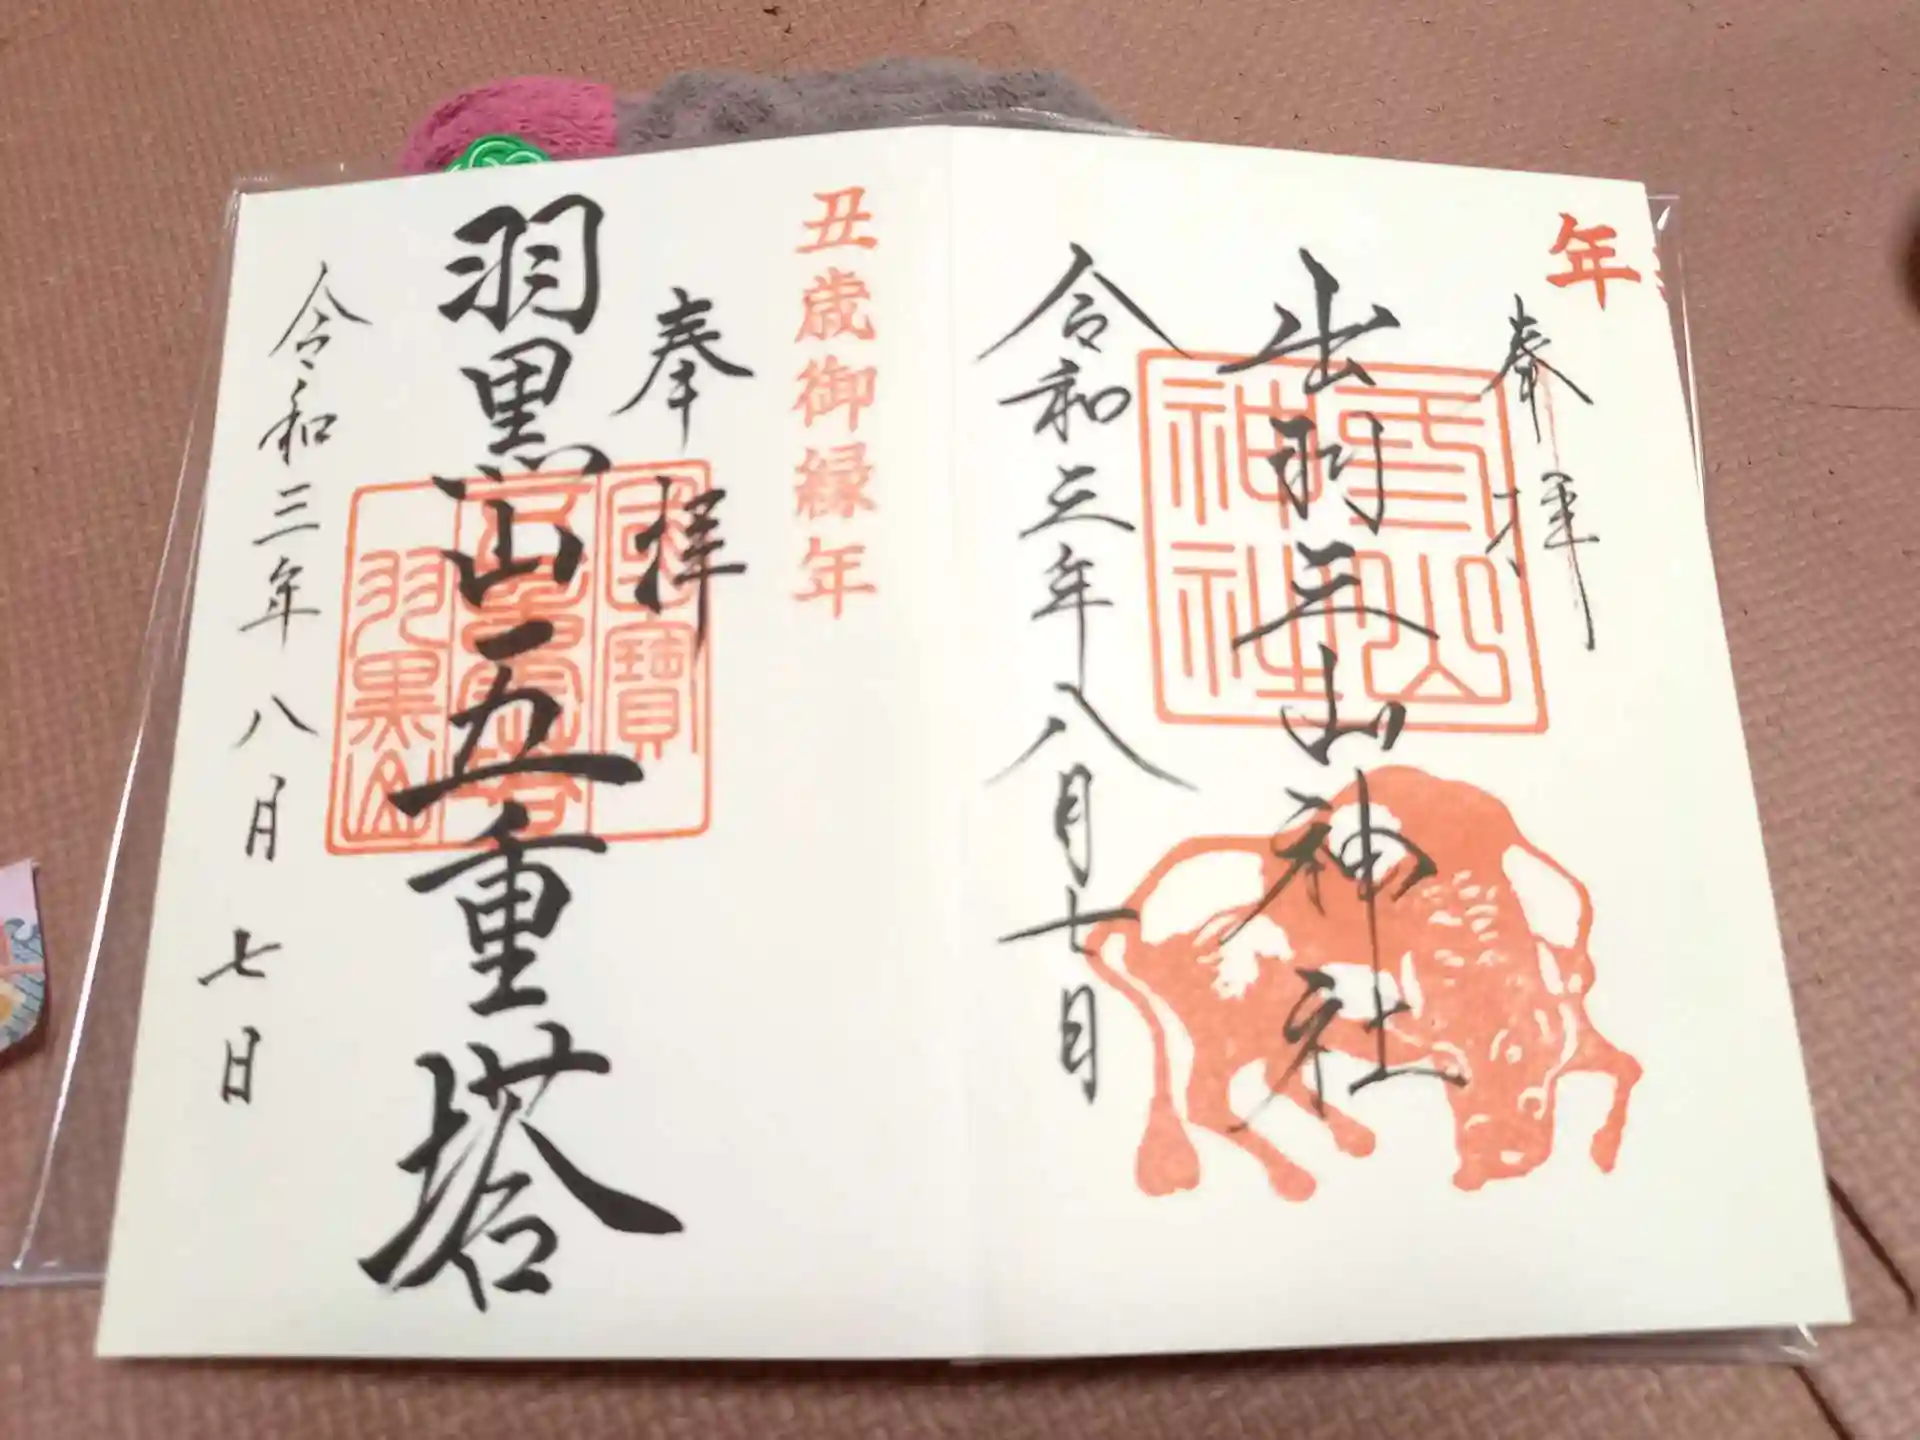 年
奉拝
出羽三山神社
令和三年八月七日
丑歳御縁年
奉拝
羽黒山五重塔
令和三年八月七日
國寶
五重塔
羽黒山